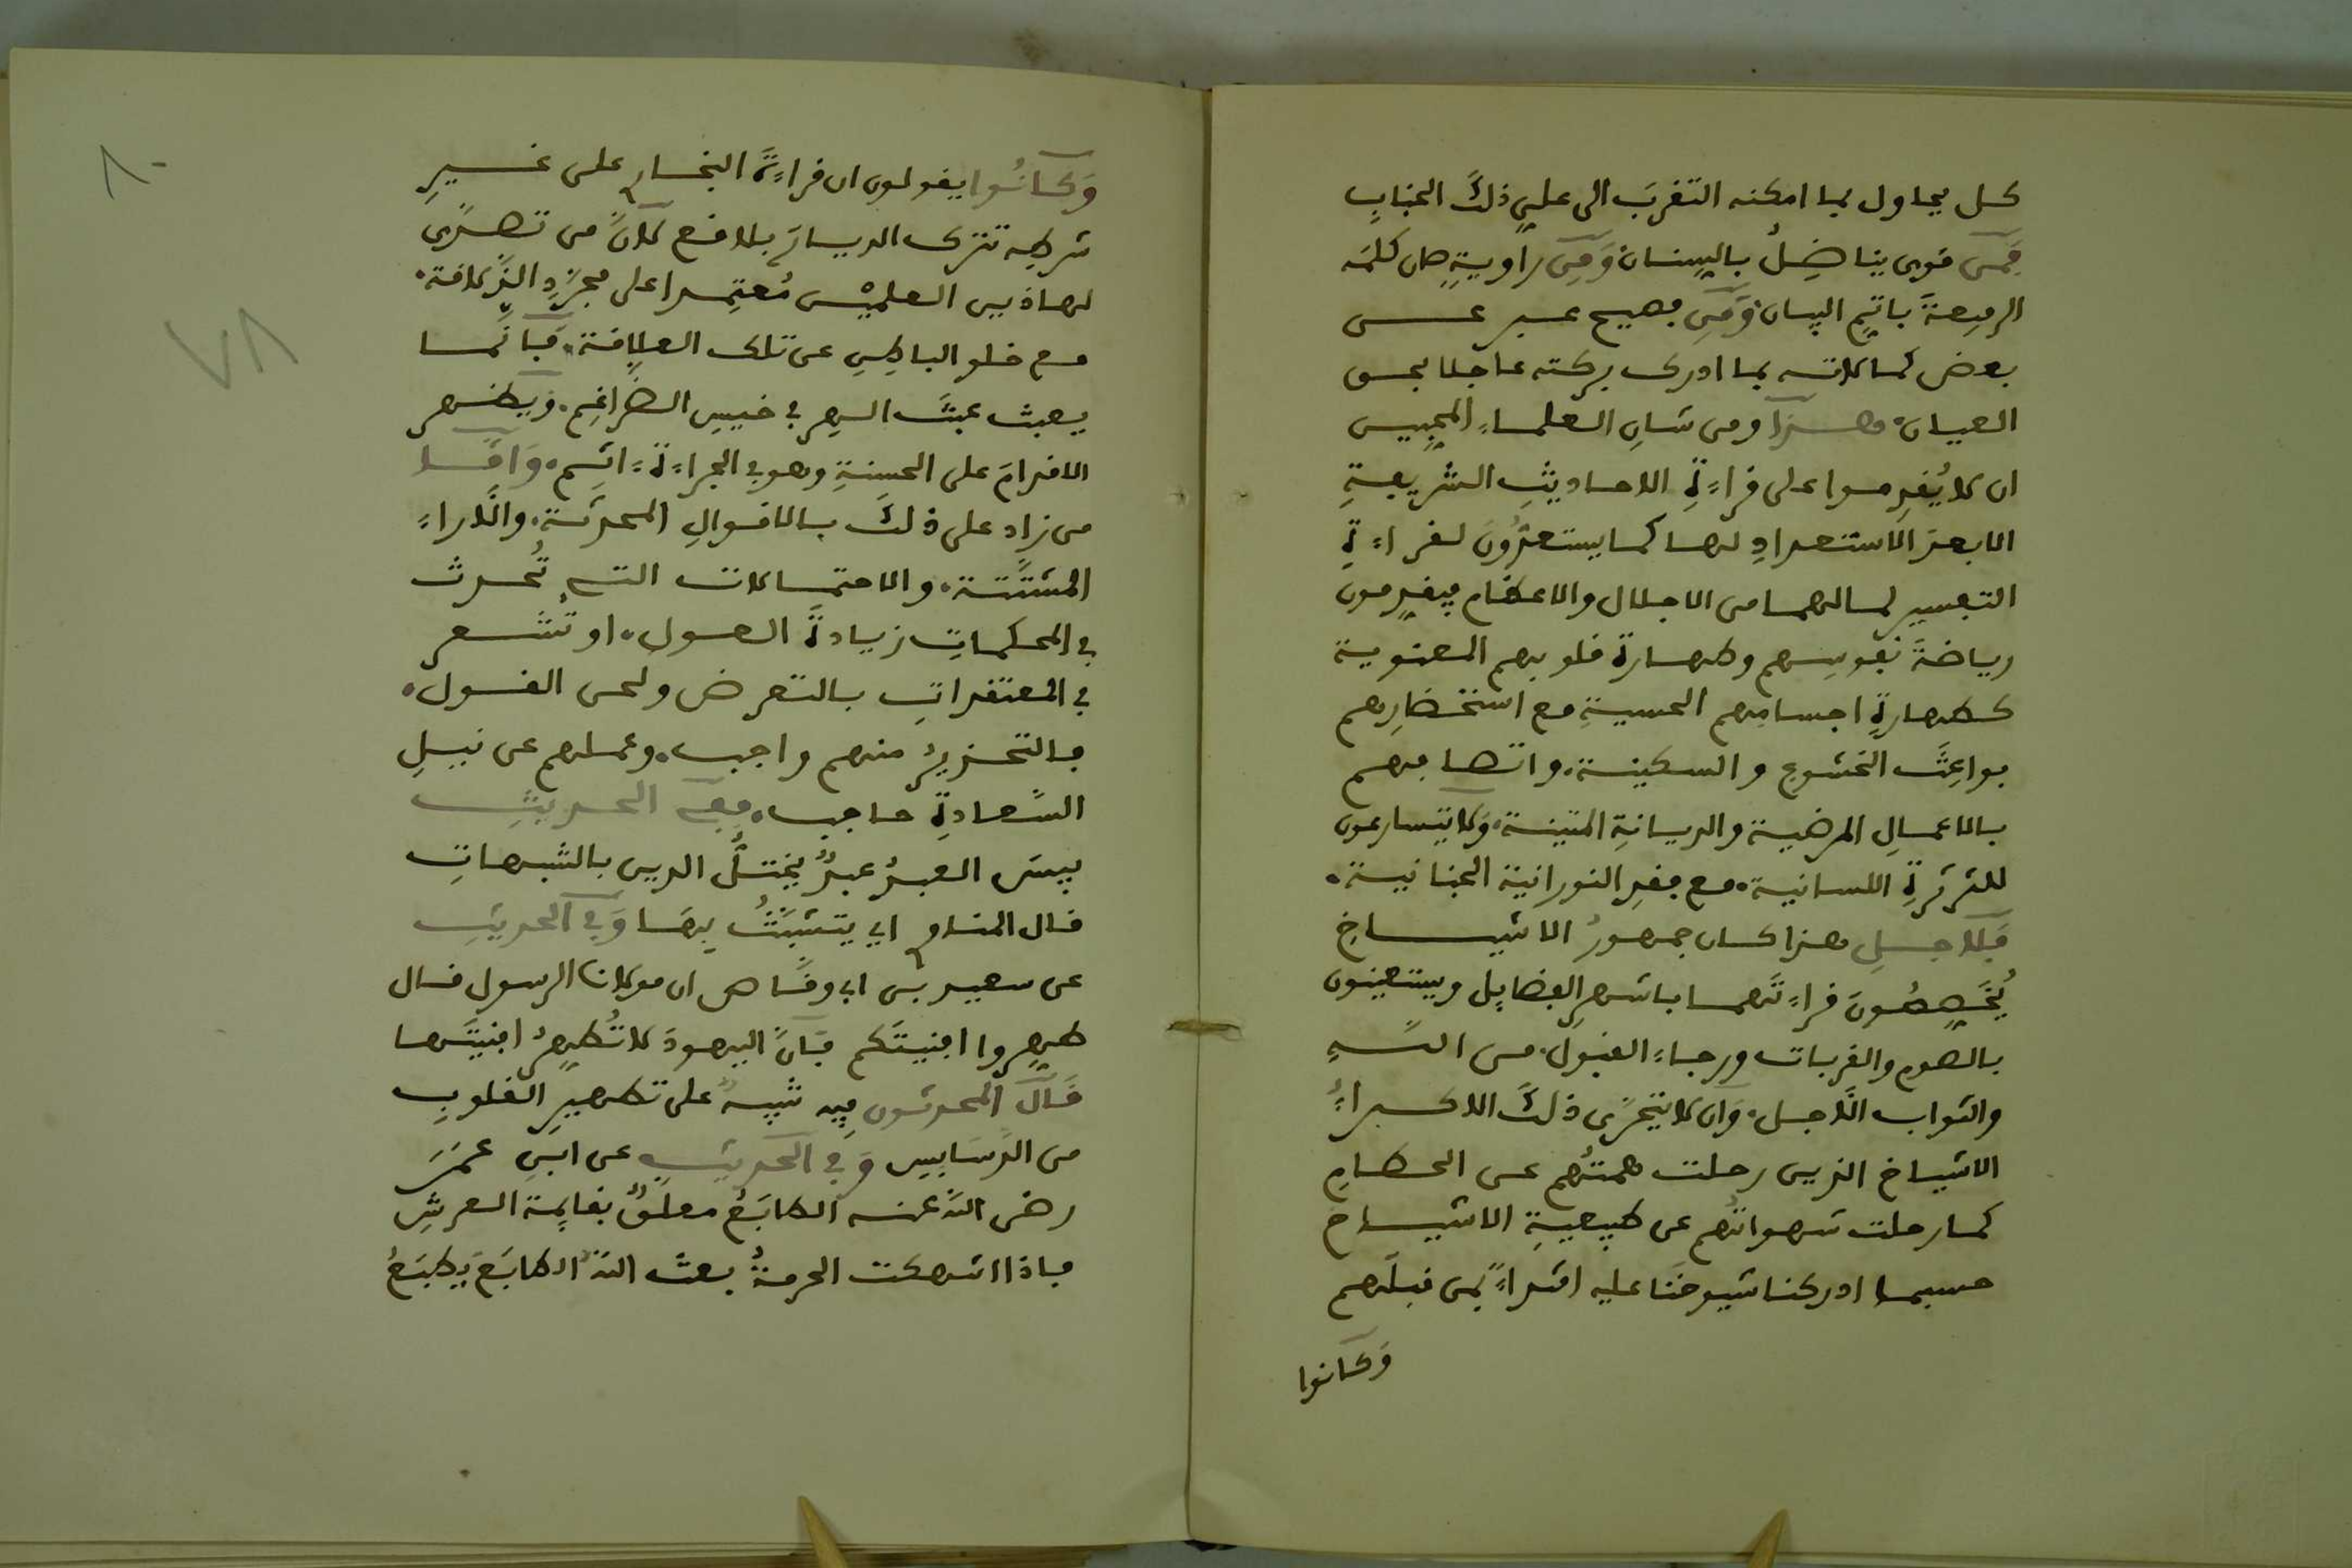 كل يحاول بما امكنه التقرب الى علي ذلك الجناب
فمن قوي يناضل باليسنان ومن راوية صان كلمه
الرفيعة باتم البيان ومن فصيح عبر عن
بعض كمالاته بما ادرك بركته عاجلا بحسن
العيان هذا ومن شان العلماء المحبين
ان لا يقدموا على قراءة الاحاديث الشريفة
الا بعد الاستعداد لها كما يستعدون لقراءة
التفسير لما لهما من الاجلال والاعظام فيقدمون
رياضة نفوسهم وطهارة قلوبهم المعنوية
كطهارة اجسامهم الحسية مع استحضارهم
بواعث الخشوع والسكينة واتصافهم
بالاعمال المرضية والديانة المتينة ولا يتسارعون
للثرثرة اللسانية مع فقد النورانية الجنانية
فلاجل هذا كان جمهور الاشياخ
يخصصون قراءتهما باشهر الفضايل ويستعينون
بالصوم والقربات ورجاء القبول من الله
والثواب الاجل وان لا يتحرى ذلك الا كبراء
الاشياخ الذين رحلت همتهم عن الحطام
كما رحلت شهواتهم عن طبيعية الاشياخ
حسبما ادركنا شيوخنا عليه اقتداء بمن قبلهم
وكانوا
٨٠
٧٨
وكانوا يقولون ان قراءة البخاري على غير
شرطه تترك الديار بلاقع لان من تصدى
لهاذين العلمين معتمدا على مجرد الذلاقة
مع خلو الباطن عن تلك العلاقة فانما
يعبث عبث الهر في خيس الضراغم ويظهر
الاقدام على الحسنة وهو في الجراءة ءاثم واما
من زاد على ذلك بالاقوال المحدثة والاراء
المشتتة والاحتمالات التي تحدث
في المحكمات زيادة العول او تشعر
في المعتقدات بالتعرض ولحن القول
فالتحذير منهم واجب وعملهم عن نيل
السعادة حاجب ففي الحديث
بيس العبد عبد يختل الدين بالشبهات
قال المناوي اي يتشبث بها وفي الحديث
عن سعيد بن ابي وقاص ان مولانا الرسول قال
طهروا افنيتكم فان اليهود لا تطهر افنيتها
قال المحدثون فيه تنبيه على تطهير القلوب
من الدسايس وفي الحديث عن ابن عمر
رضي الله عنه الطابع معلق بقايمة العرش
فاذا انتهكت الحرمة بعث الله الطابع فيطبع